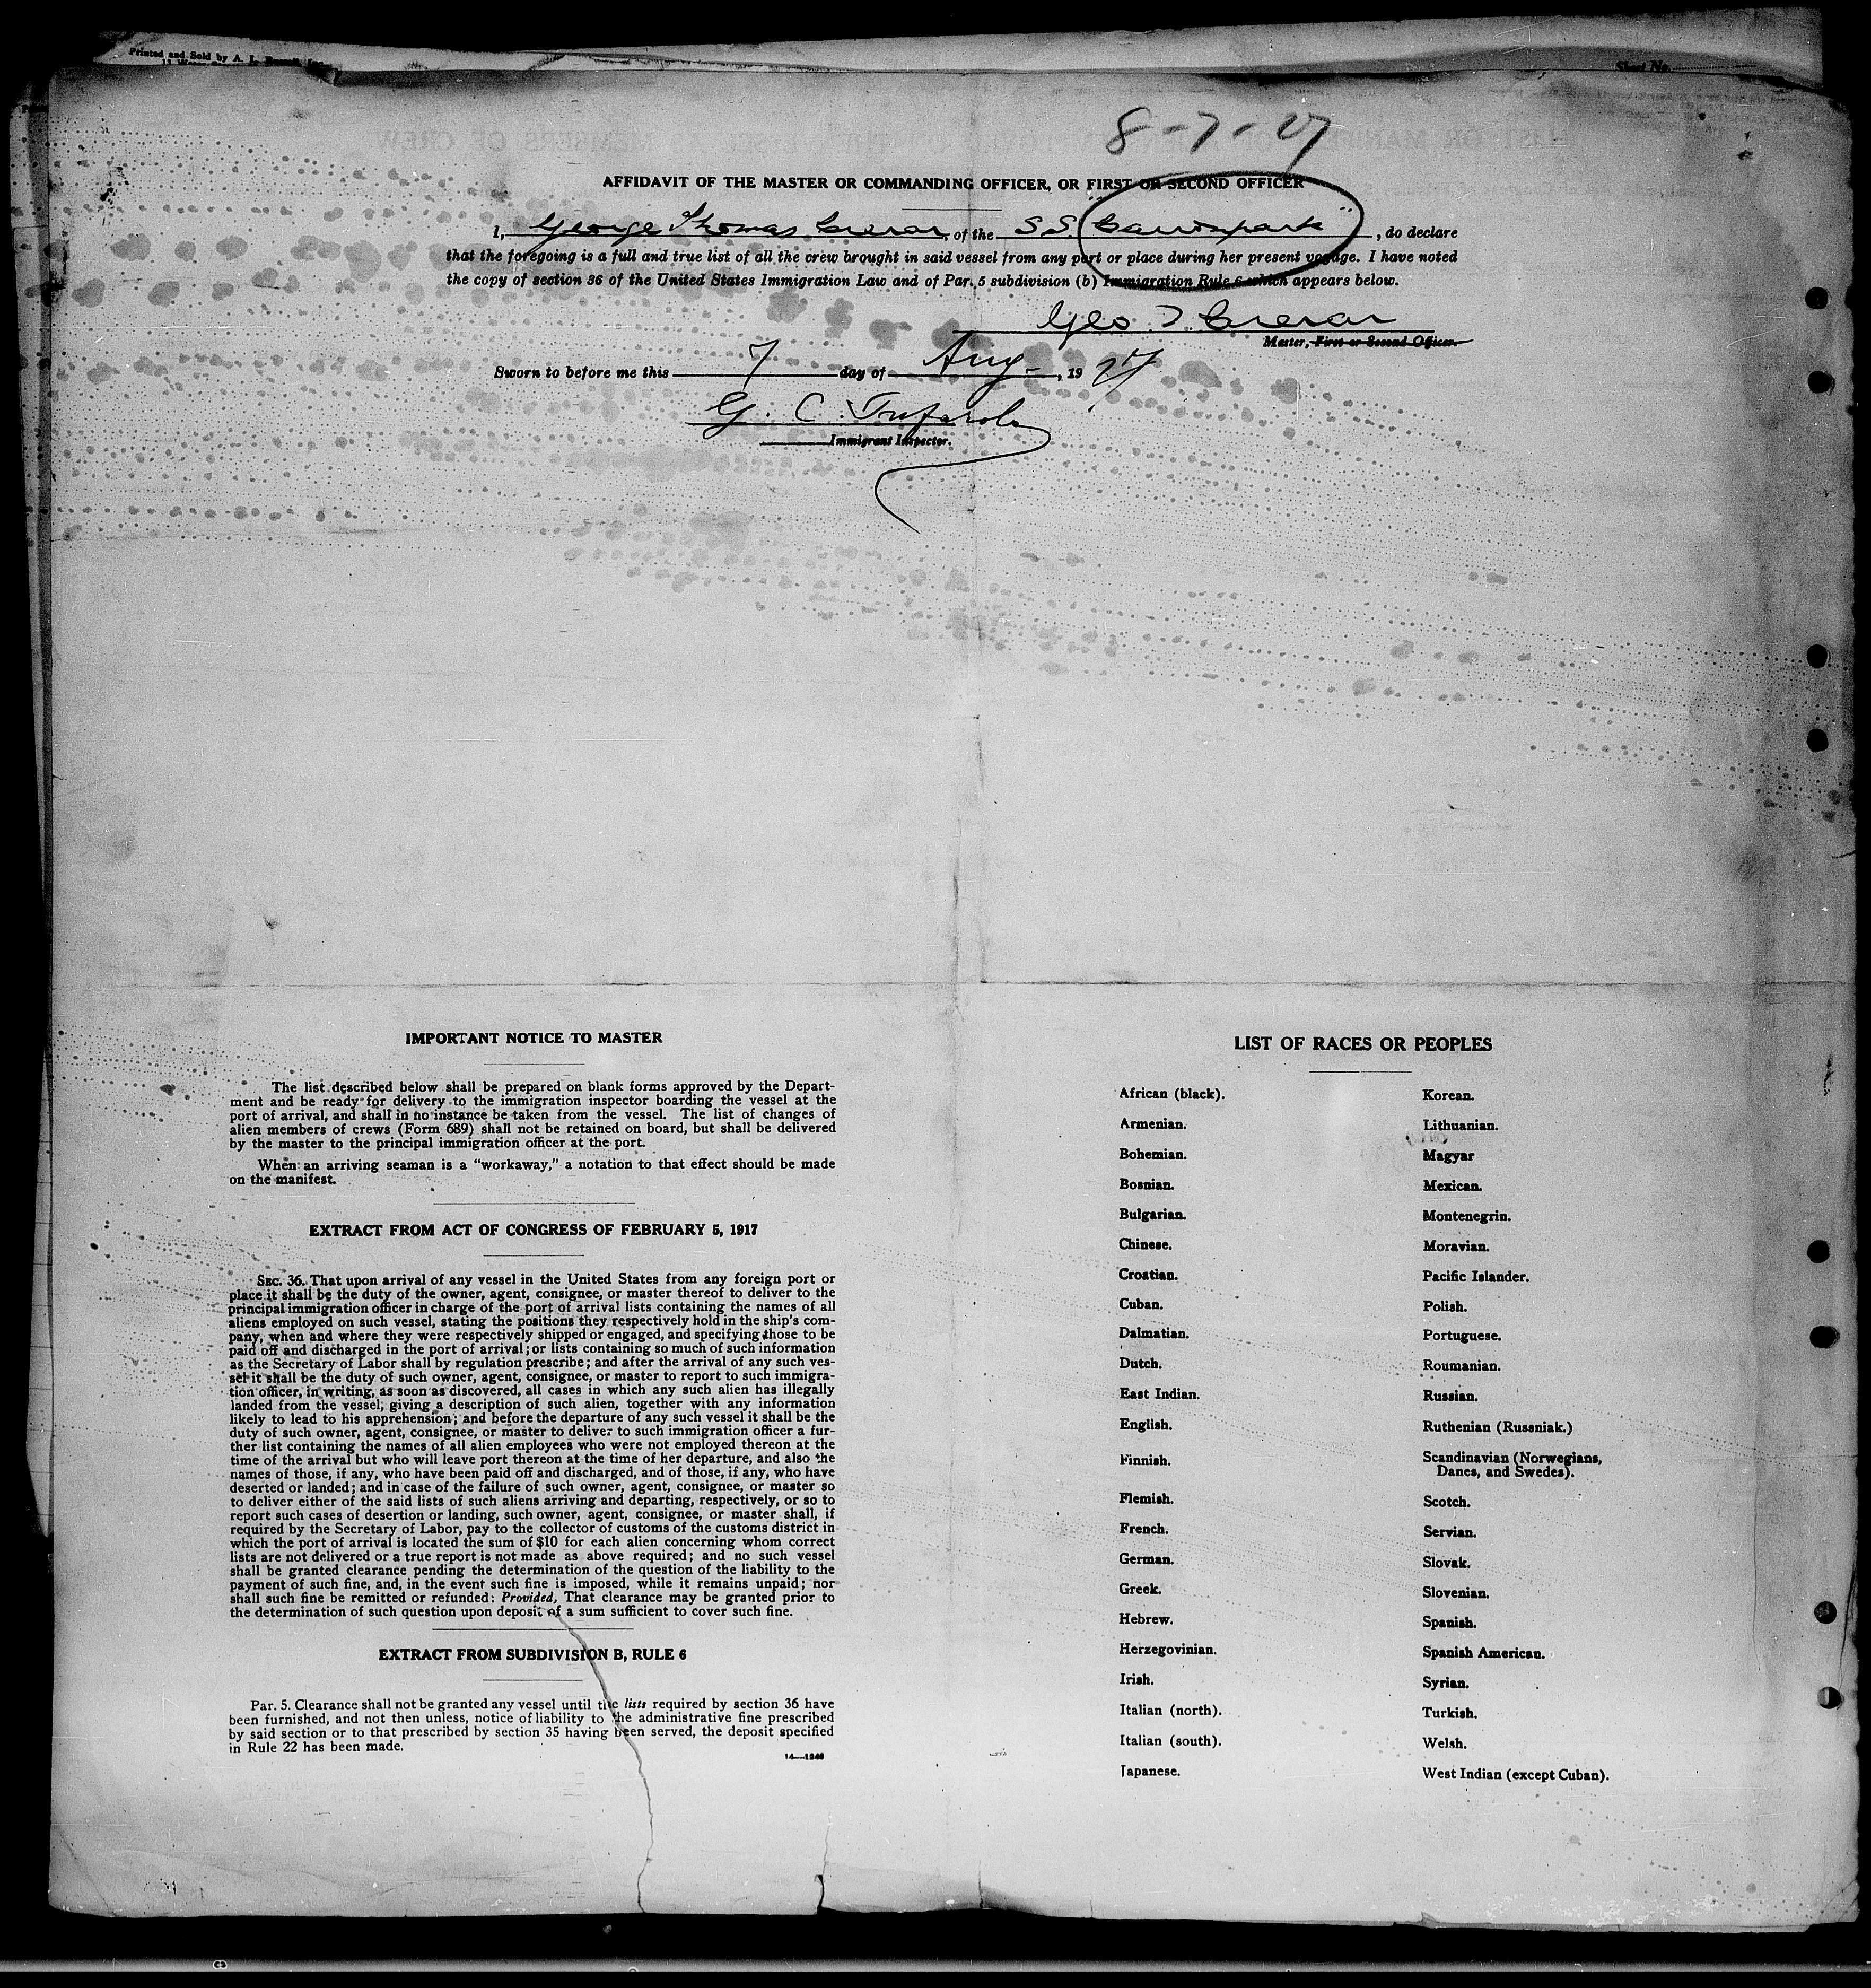 Printed and Sold by A. L.
Sheet No.
8-7-27
AFFIDAVIT OF THE MASTER OR COMMANDING OFFICER, OR FIRST OR SECOND OFFICER
I, George Thomas Crerar, of the S.S. "Cairnspark", do declare
that the foregoing is a full and true list of all the crew brought in said vessel from any port or place during her present voyage. I have noted
the copy of section 36 of the United States Immigration Law and of Par. 5 subdivision (b) Immigration Rule 6 which appears below.
Geo T Crerar
Master, First or Second Officer.
Sworn to before me this 7 day of Aug-, 19 27
G. C.
Immigrant Inspector.
IMPORTANT NOTICE TO MASTER
The list described below shall be prepared on blank forms approved by the Depart-
ment and be ready for delivery to the immigration inspector boarding the vessel at the
port of arrival, and shall in no instance be taken from the vessel. The list of changes of
alien members of crews (Form 689) shall not be retained on board, but shall be delivered
by the master to the principal immigration officer at the port.
When an arriving seaman is a "workaway," a notation to that effect should be made
on the manifest.
EXTRACT FROM ACT OF CONGRESS OF FEBRUARY 5, 1917
SEC. 36. That upon arrival of any vessel in the United States from any foreign port or
place it shall be the duty of the owner, agent, consignee, or master thereof to deliver to the
principal immigration officer in charge of the port of arrival lists containing the names of all
aliens employed on such vessel, stating the positions they respectively hold in the ship's com-
pany, when and where they were respectively shipped or engaged, and specifying those to be
paid off and discharged in the port of arrival; or lists containing so much of such information
as the Secretary of Labor shall by regulation prescribe; and after the arrival of any such ves-
sel it shall be the duty of such owner, agent, consignee, or master to report to such immigra-
tion officer, in writing, as soon as discovered, all cases in which any such alien has illegally
landed from the vessel, giving a description of such alien, together with any information
likely to lead to his apprehension; and before the departure of any such vessel it shall be the
duty of such owner, agent, consignee, or master to deliver to such immigration officer a fur-
ther list containing the names of all alien employees who were not employed thereon at the
time of the arrival but who will leave port thereon at the time of her departure, and also the
names of those, if any, who have been paid off and discharged, and of those, if any, who have
deserted or landed; and in case of the failure of such owner, agent, consignee, or master so
to deliver either of the said lists of such aliens arriving and departing, respectively, or so to
report such cases of desertion or landing, such owner, agent, consignee, or master shall, if
required by the Secretary of Labor, pay to the collector of customs of the customs district in
which the port of arrival is located the sum of $10 for each alien concerning whom correct
lists are not delivered or a true report is not made as above required; and no such vessel
shall be granted clearance pending the determination of the question of the liability to the
payment of such fine, and, in the event such fine is imposed, while it remains unpaid; nor
shall such fine be remitted or refunded: Provided, That clearance may be granted prior to
the determination of such question upon deposit of a sum sufficient to cover such fine.
EXTRACT FROM SUBDIVISION B, RULE 6
Par. 5. Clearance shall not be granted any vessel until the lists required by section 36 have
been furnished, and not then unless, notice of liability to the administrative fine prescribed
by said section or to that prescribed by section 35 having been served, the deposit specified
in Rule 22 has been made.
14—1240
LIST OF RACES OR PEOPLES
African (black).
Armenian.
Bohemian.
Bosnian.
Bulgarian.
Chinese.
Croatian.
Cuban.
Dalmatian.
Dutch.
East Indian.
English.
Finnish.
Flemish.
French.
German.
Greek.
Hebrew.
Herzegovinian.
Irish.
Italian (north).
Italian (south).
Japanese.
Korean.
Lithuanian.
Magyar
Mexican.
Montenegrin.
Moravian.
Pacific Islander.
Polish.
Portuguese.
Roumanian.
Russian.
Ruthenian (Russniak.)
Scandinavian (Norwegians,
Danes, and Swedes).
Scotch.
Servian.
Slovak.
Slovenian.
Spanish.
Spanish American.
Syrian.
Turkish.
Welsh.
West Indian (except Cuban).